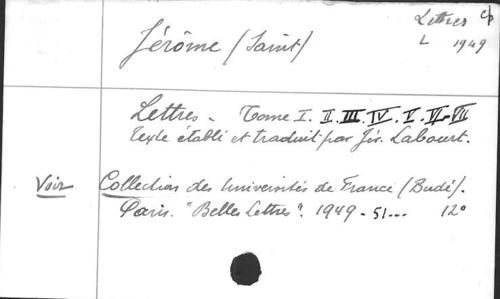 Lettres
L 1949
Jérôme (Saint)
Lettres. - Tome I. II. III. IV. V. VI-VII
Texte établi et traduit par Jér. Labourt.
Voir Collection des Universités de France (Budé).
Paris. "Belles Lettres". 1949 - 51... 12°